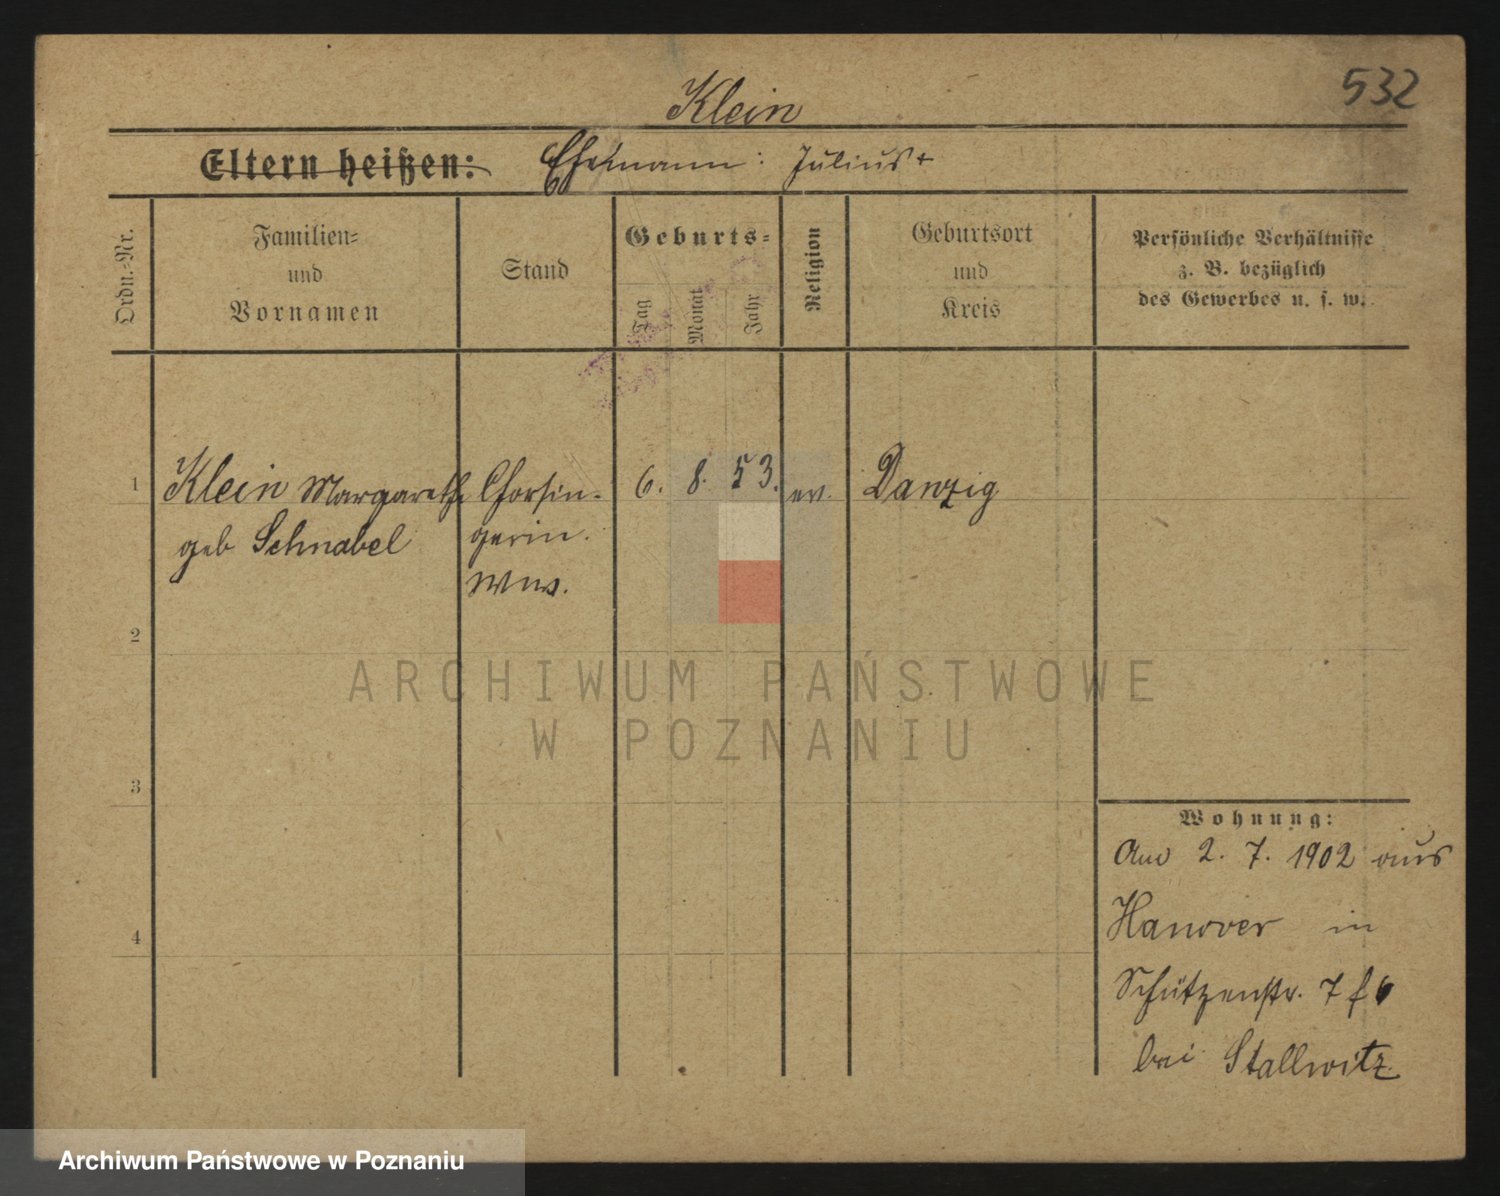 Klein
532
Eltern heißen: Ehemann: Julius +
Ordn.-Nr.
Familien-
und
Vornamen
Stand
Geburts-
Tag
Monat
Jahr
Religion
Geburtsort
und
Kreis
Persönliche Verhältnisse
z. B. bezüglich
des Gewerbes u. s. w.
1 Klein Margarethe Chorsin- 6. 8. 53. ev. Danzig
geb Schnabel gerin.
Ww.
2
ARCHIWUM PAŃSTWOWE
W POZNANIU
3
Wohnung:
Am 2. 7. 1902 aus
4
Hanover in
Schützenstr. 7
bei Stallwitz
Archiwum Państwowe w Poznaniu